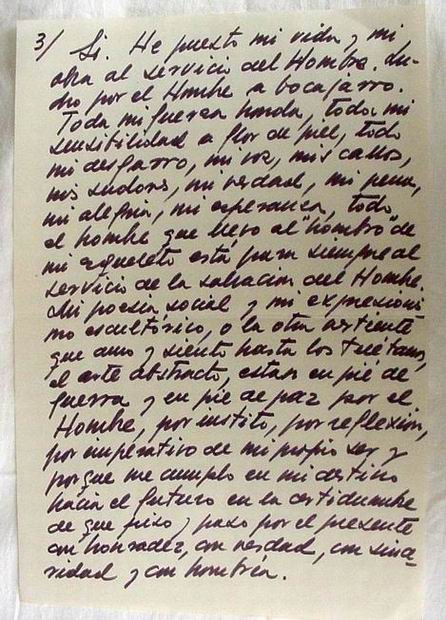 3/ Si. He puesto mi vida y mi
obra al servicio del Hombre. Lu-
cho por el Hombre a bocajarro.
Toda mi fuerza honda, toda mi
sensibilidad a flor de piel, todo
mi desgarro, mi voz, mis callos,
mis sudores, mi verdad, mi pena,
mi alegria, mi esperanza, todo
el hombre que llevo al "hombro" de
mi esqueleto está para siempre al
servicio de la salvacion del Hombre.
Mi poesia social y mi expresionis
mo escultórico, o la otra vertiente
que amo y siento hasta los tuétanos,
el arte abstracto, estan en pie de
guerra y en pie de paz por el
Hombre, por instinto, por reflexion,
por imperativo de mi propio ser y
porque me cumplo en mi destino
hacia el futuro en la certidumbre
de que piso y paso por el presente
con honradez, con verdad, con since-
ridad y con hombria.